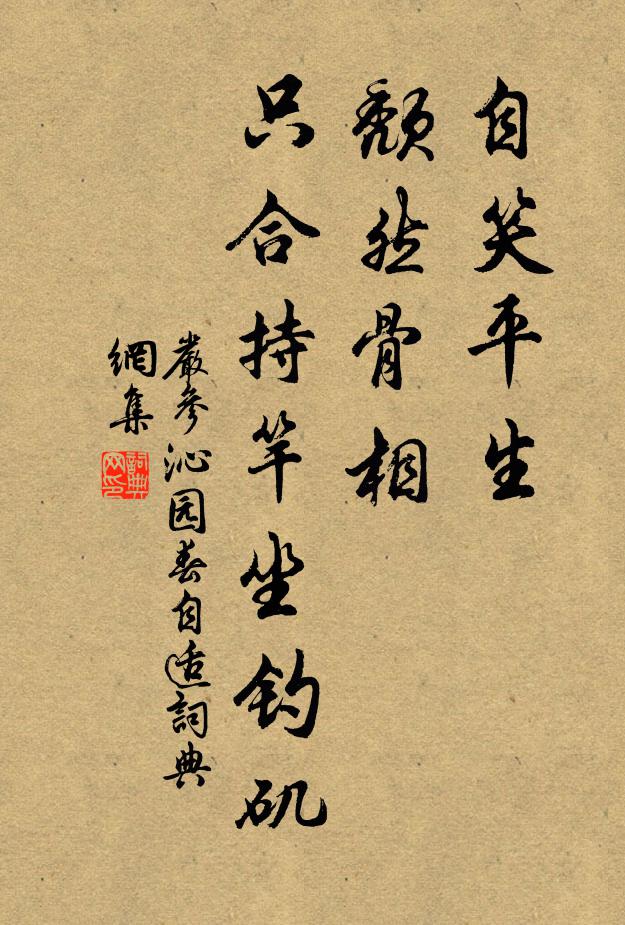 自笑平生
颓然骨相
只合持竿坐钓矶
嚴參沁园春自适詞典
網集
詞典网印